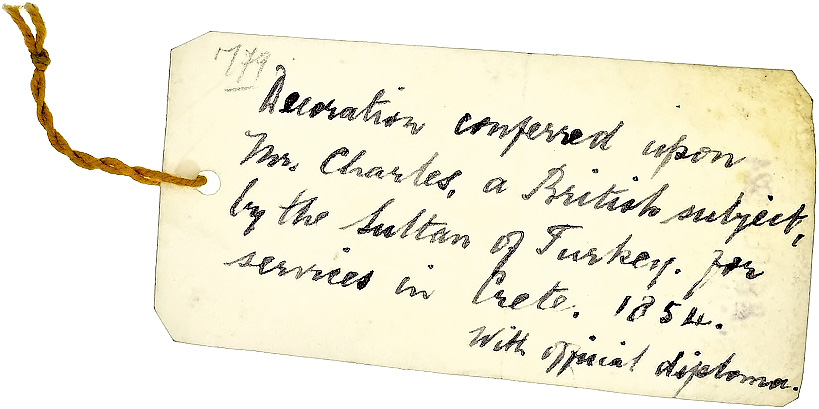 M79
Decoration conferred upon
Mr. Charles, a British subject,
by the Sultan of Turkey. for
services in Crete. 1854.
With official diploma.